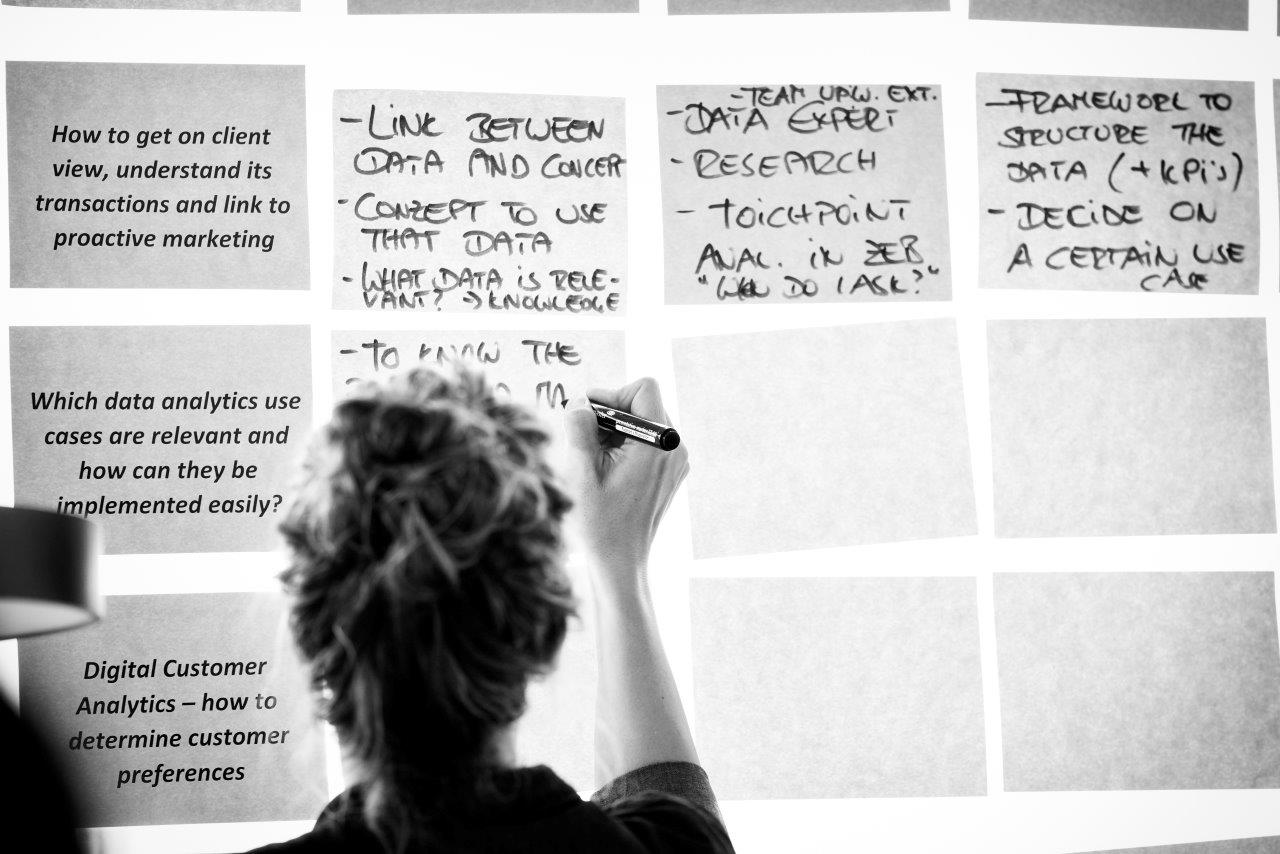 How to get on client
view, understand its
transactions and link to
proactive marketing
- LINK BETWEEN
DATA AND CONCEPT
- CONZEPT TO USE
THAT DATA
- WHAT DATA is RELE-
VANT? → KNOWLEDGE
- TEAM EXT.
- DATA EXPERT
- RESEARCH
- TOiCHPOiNT
ANAL. iN ZEB
" DO I ASK?"
- FRAMEWORK TO
STRUCTURE THE
DATA (+ KPi's)
- DECiDE ON
A CERTAiN USE
CASE
Which data analytics use
cases are relevant and
how can they be
implemented easily?
- TO KNOW THE
Digital Customer
Analytics – how to
determine customer
preferences